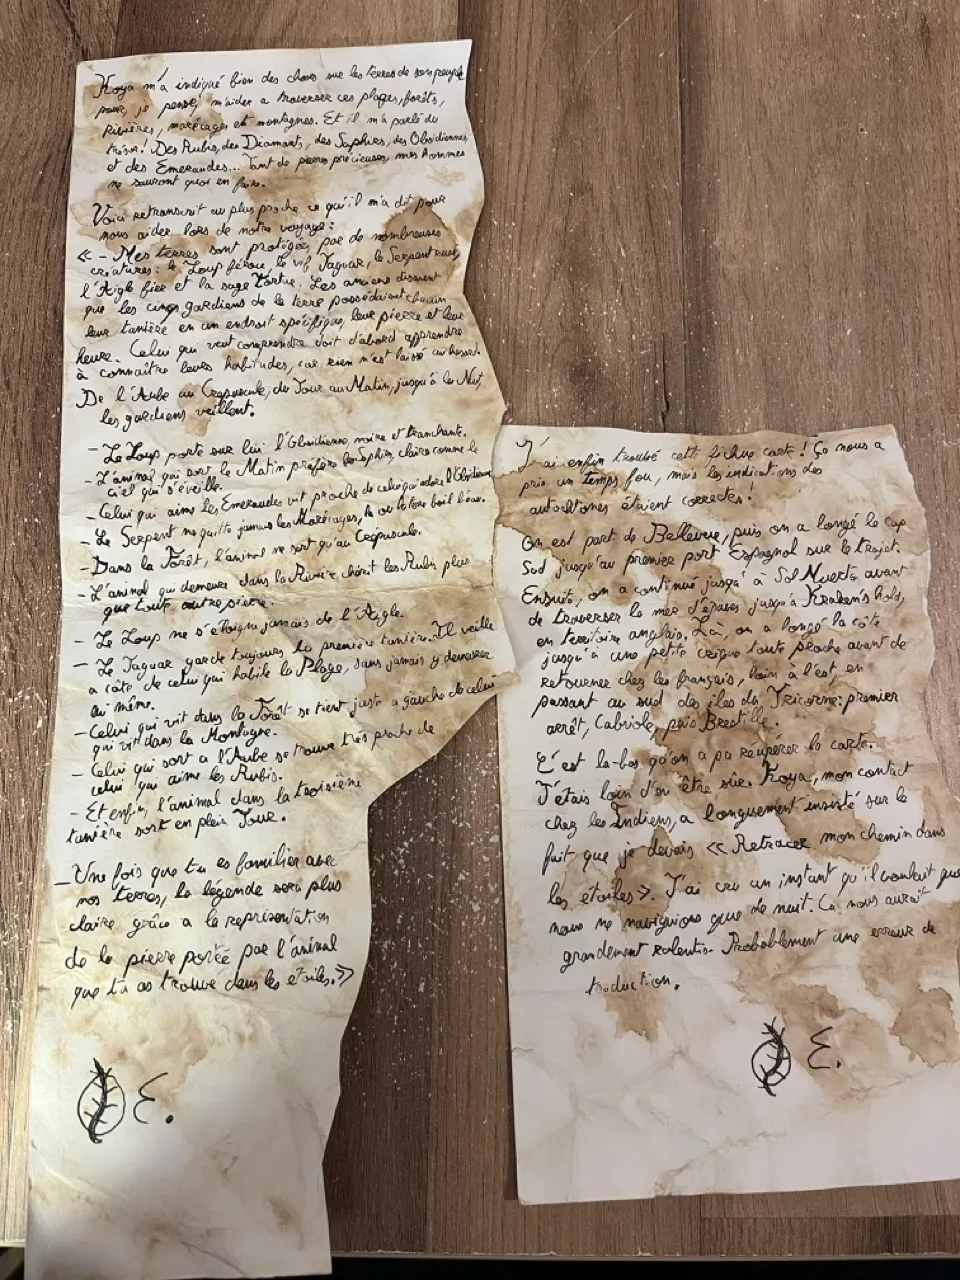 Koya m'a indiqué bien des choses sur les terres de son peuple
pour, je pense, m'aider a traverser ces plages, forêts,
Rivières, marécages et montagnes. Et il m'a parlé du
trésor! Des Rubis, des Diamants, des Saphirs, des Obsidiennes
et des Emeraudes... Tant de pierres précieuses, mes hommes
ne sauront quoi en faire.
Voici retranscrit au plus proche ce qu'il m'a dit pour
nous aider lors de notre voyage :
« - Mes terres sont protégées par de nombreuses
créatures : le Loup féroce, le vif Jaguar, le Serpent rusé,
l'Aigle fier et la sage Tortue. Les anciens disaient
que les cinq gardiens de la terre possédaient chacun
leur tanière en un endroit spécifique, leur pierre et leur
heure. Celui qui veut comprendre doit d'abord apprendre
à connaître leurs habitudes, car rien n'est laissé au hasard.
De l'Aube au Crépuscule, du Jour au Matin, jusqu'à la Nuit,
les gardiens veillent.
- Le Loup porte sur lui l'Obsidienne, noire et tranchante.
- L'animal qui sort le Matin préfère les Saphirs, claire comme le
ciel qui s'éveille.
- Celui qui aime les Emeraudes vit proche de celui qui adore l'Obsidienne
- Le Serpent ne quitte jamais les Marécages, là où le tons boil l'eau.
- Dans la Forêt, l'animal ne sort qu'au Crépuscule.
- L'animal qui demeure dans la Rivière chérit les Rubis plus
que toute autre pierre.
- Le Loup ne s'éloigne jamais de l'Aigle.
- Le Jaguar garde toujours la première tanière. Il veille
a côté de celui qui habite la Plage, sans jamais y demeurer
lui même.
- Celui qui vit dans la Forêt se tient juste a gauche de celui
qui vit dans la Montagne.
- Celui qui sort a l'Aube se trouve très proche de
celui qui aime les Rubis.
- Et enfin, l'animal dans la troisième
tanière sort en plein Jour.
- Une fois que tu es familier avec
nos terres, la légende sera plus
claire grâce a la représentation
de la pierre portée par l'animal
que tu as trouvé dans les étoiles. »
E.
J'ai enfin trouvé cette fichue carte ! Ça nous a
pris un temps fou, mais les indications des
autochtones étaient correctes !
On est part de Bellevue, puis on a longé le cap
Sud jusqu'au premier port Espagnol sur le trajet.
Ensuite, on a continué jusqu'à Sol Muerto avant
de traverser la mer d'épaves jusqu'à Kraken's hold,
en territoire anglais. Là, on a longé la côte
jusqu'à une petite crique toute proche avant de
retourner chez les français, loin à l'est, en
passant au sud des îles du Tricorne : premier
arrêt, Cabriole, puis Brestille.
C'est là-bas qu'on a pu récupérer la carte.
J'étais loin d'en être sûr. Koya, mon contact
chez les Indiens, a longuement insisté sur le
fait que je devais « Retracer mon chemin dans
les étoiles ». J'ai cru un instant qu'il voulait que
nous ne naviguions que de nuit. Ça nous aurait
grandement ralentis. Probablement une erreur de
traduction.
E.